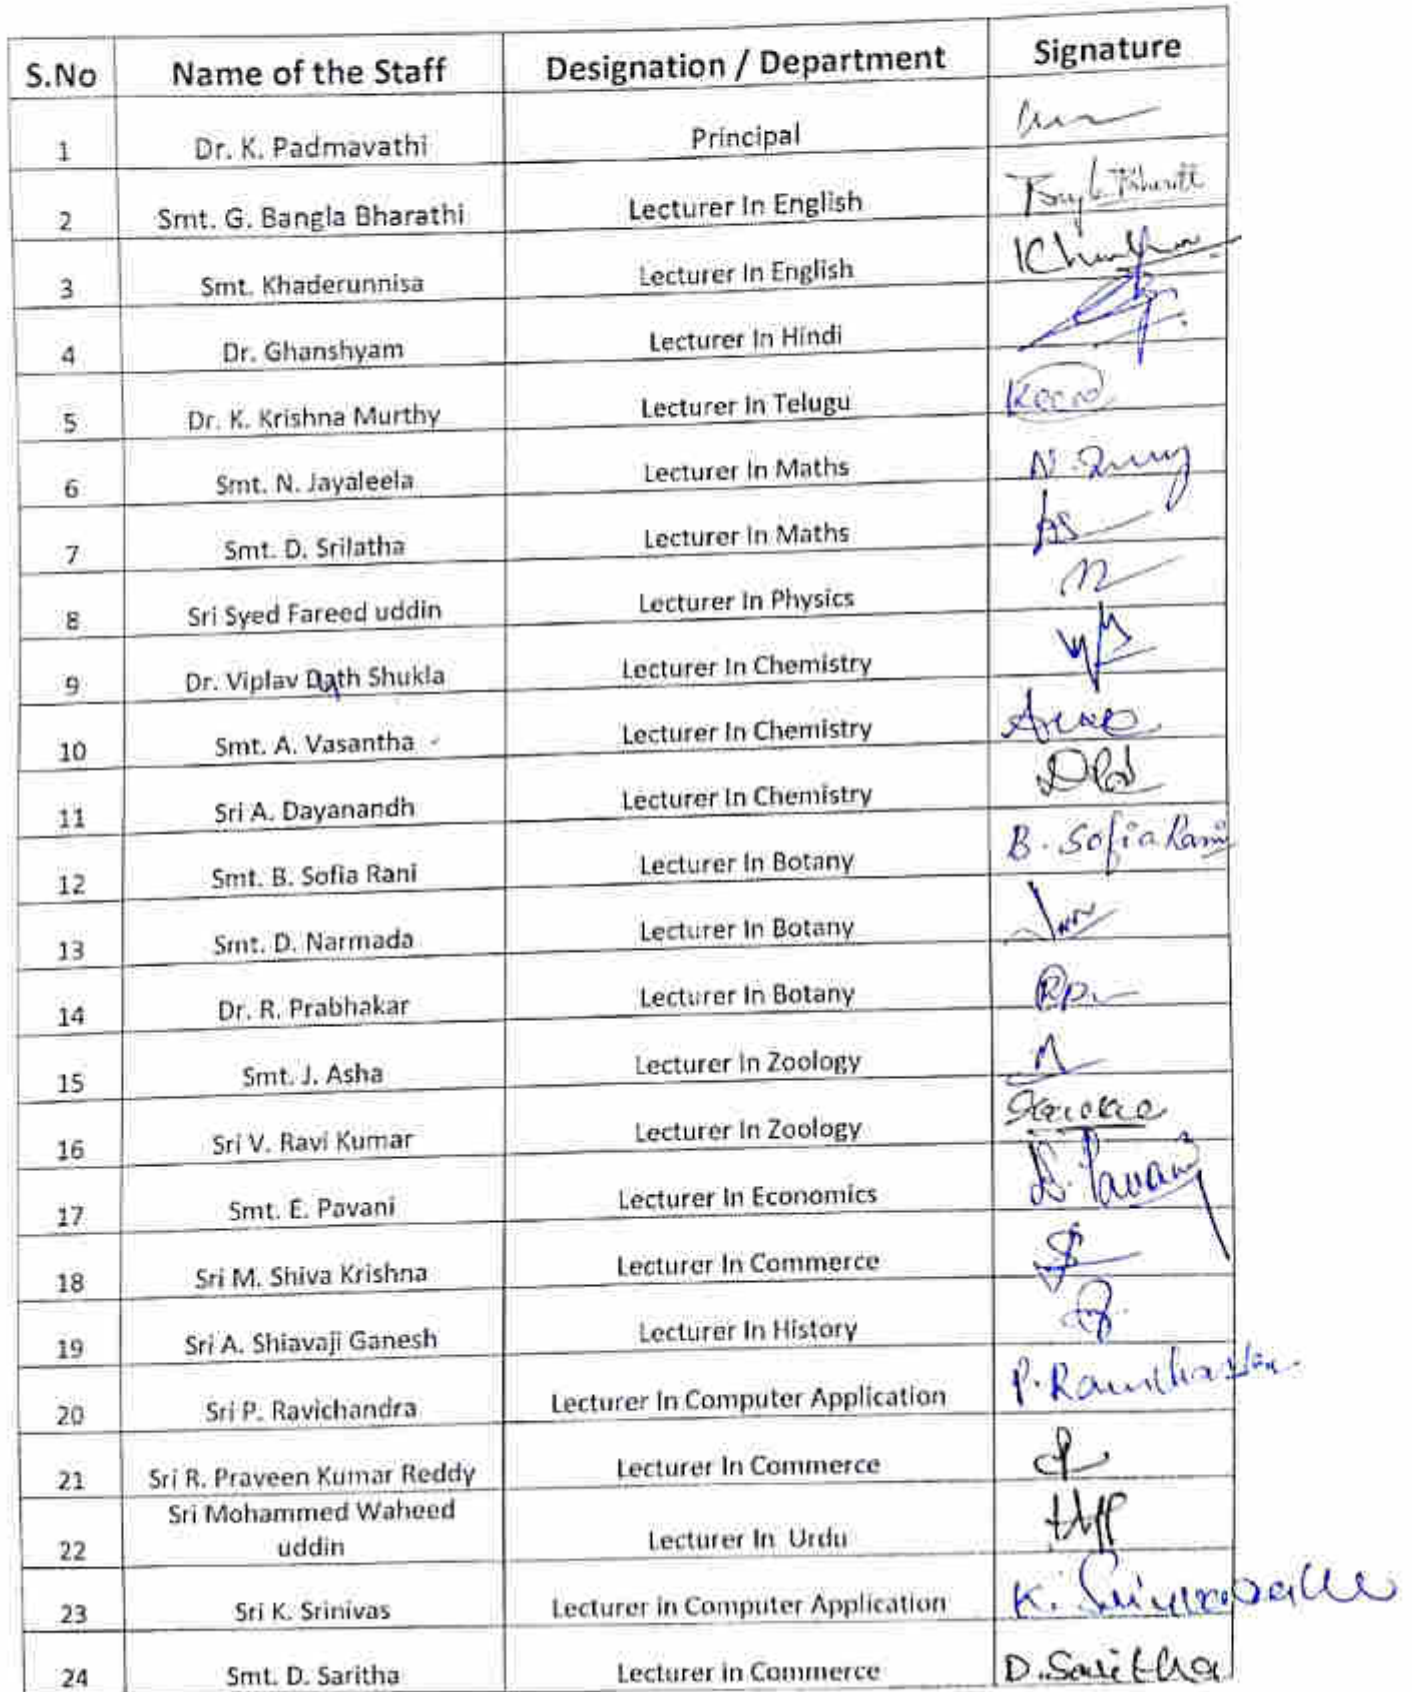 S.No Name of the Staff Designation / Department Signature
1 Dr. K. Padmavathi Principal
2 Smt. G. Bangla Bharathi Lecturer In English
3 Smt. Khaderunnisa Lecturer In English
4 Dr. Ghanshyam Lecturer In Hindi
5 Dr. K. Krishna Murthy Lecturer In Telugu
6 Smt. N. Jayaleela Lecturer In Maths
7 Smt. D. Srilatha Lecturer In Maths
8 Sri Syed Fareed uddin Lecturer In Physics
9 Dr. Viplav Dath Shukla Lecturer In Chemistry
10 Smt. A. Vasantha Lecturer In Chemistry
11 Sri A. Dayanandh Lecturer In Chemistry
12 Smt. B. Sofia Rani Lecturer In Botany B. Sofia Rani
13 Smt. D. Narmada Lecturer In Botany
14 Dr. R. Prabhakar Lecturer In Botany
15 Smt. J. Asha Lecturer In Zoology
16 Sri V. Ravi Kumar Lecturer In Zoology
17 Smt. E. Pavani Lecturer In Economics E. Pavani
18 Sri M. Shiva Krishna Lecturer In Commerce
19 Sri A. Shiavaji Ganesh Lecturer In History
20 Sri P. Ravichandra Lecturer In Computer Application
21 Sri R. Praveen Kumar Reddy Lecturer In Commerce
Sri Mohammed Waheed
22 uddin Lecturer In Urdu
23 Sri K. Srinivas Lecturer in Computer Application
24 Smt. D. Saritha Lecturer in Commerce D. Saritha